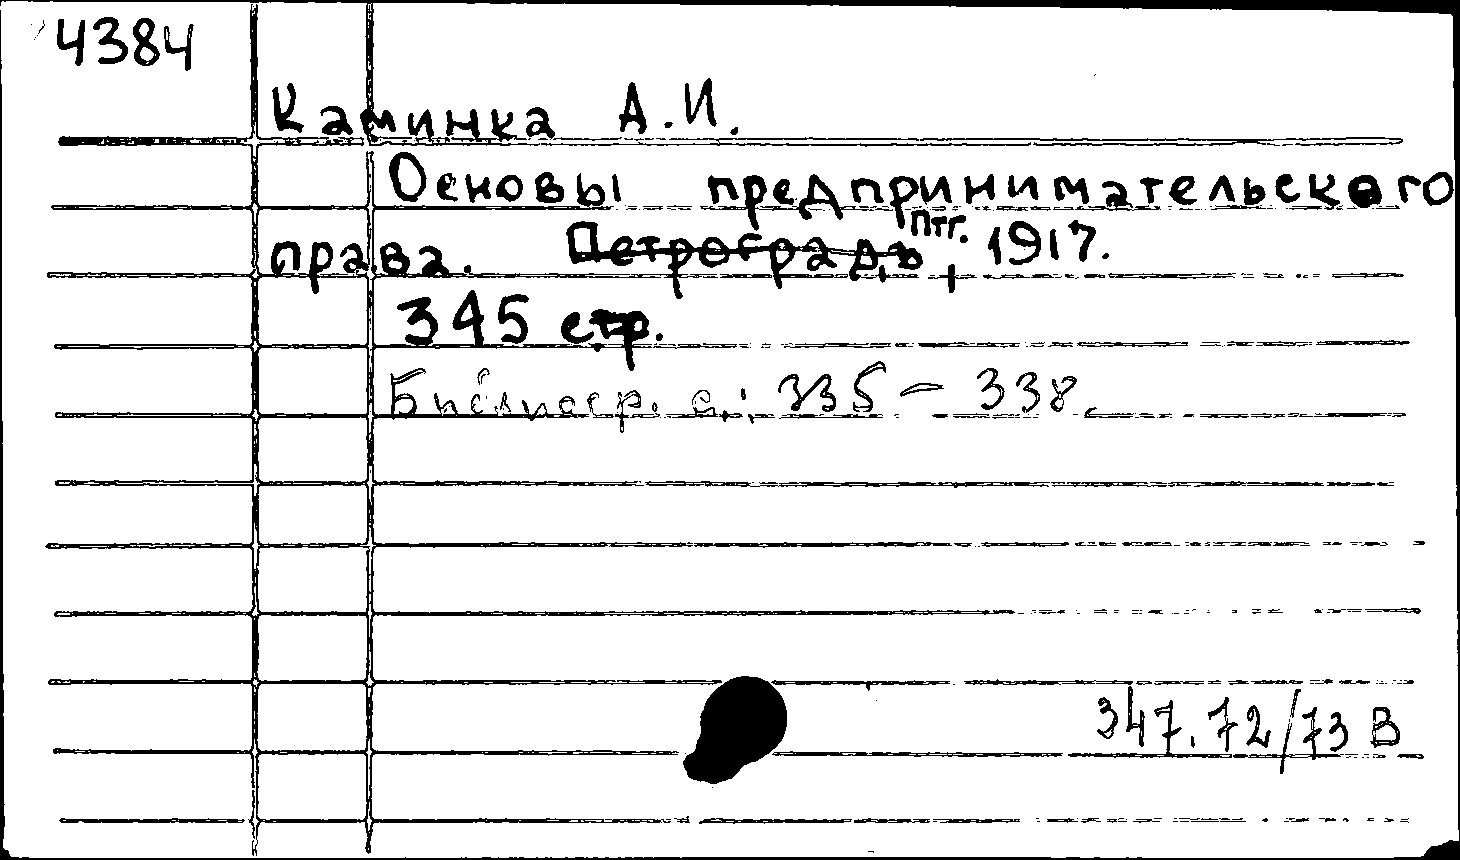 4384
Каминка А.И.
Основы предпринимательского
права. Петроградъ Птг., 1917.
345 стр.
Библиогр. с.: 335 – 338.
347.72/73 В